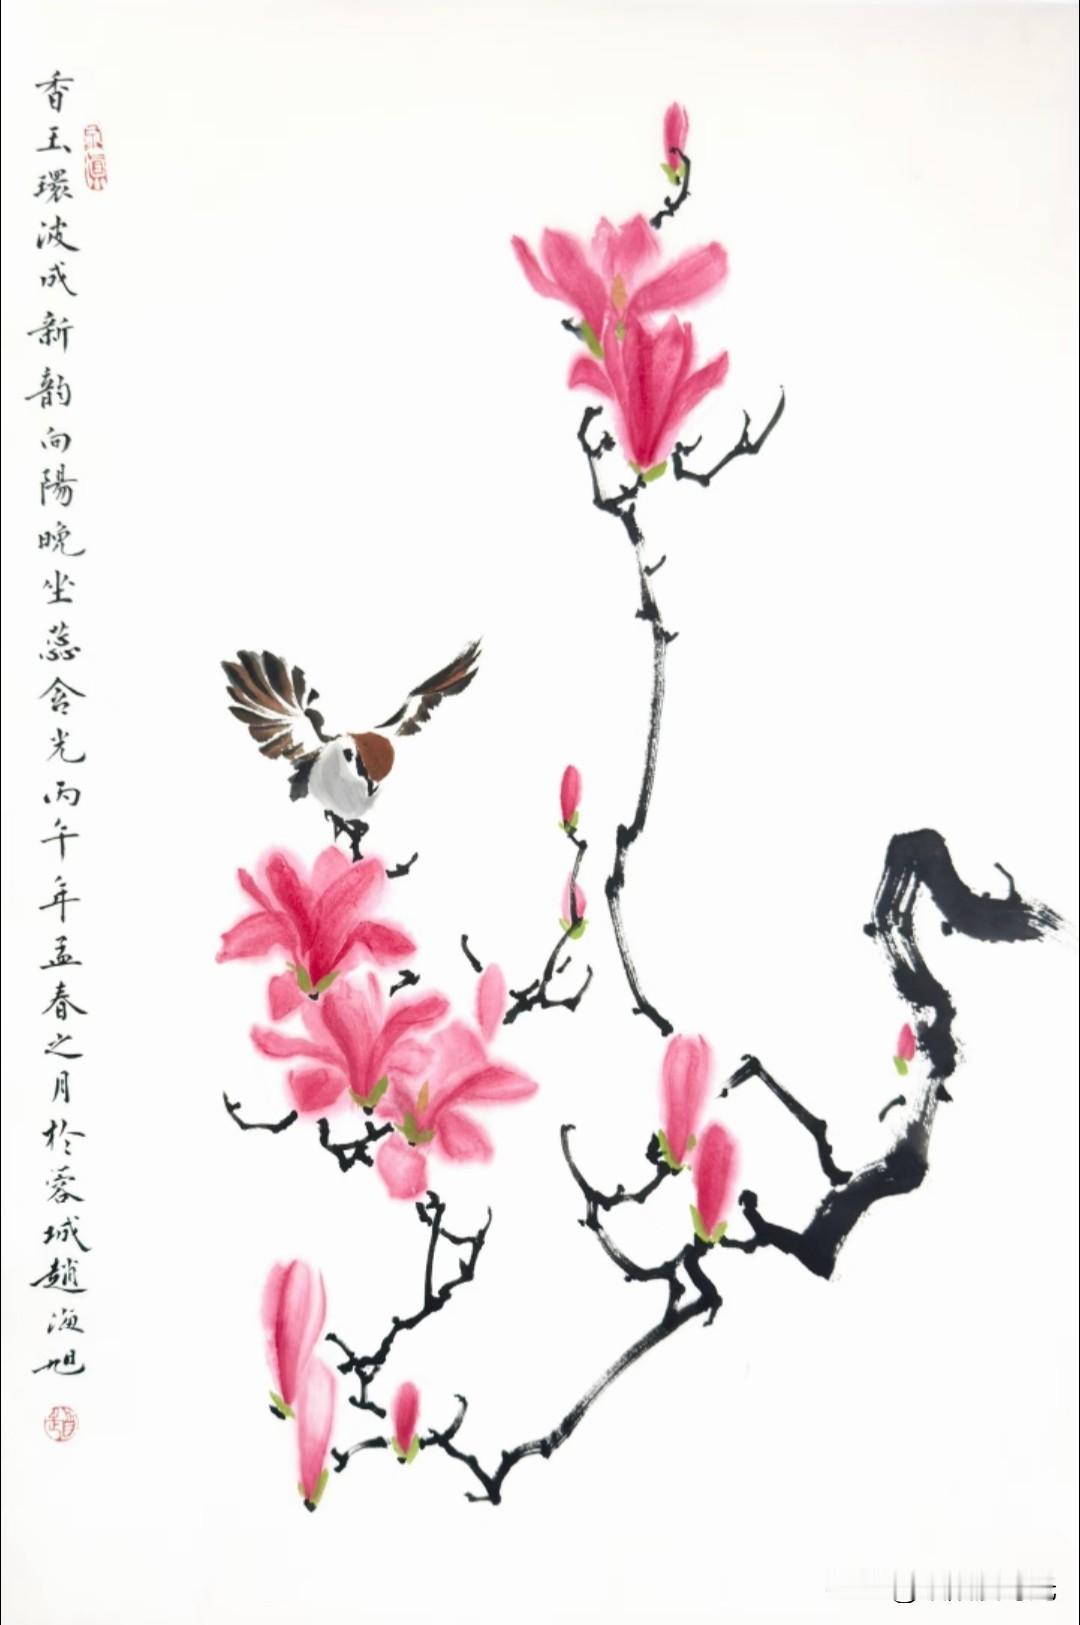 香玉環波成新韵向陽晚坐蕊含光丙午年孟春之月於蓉城趙海旭